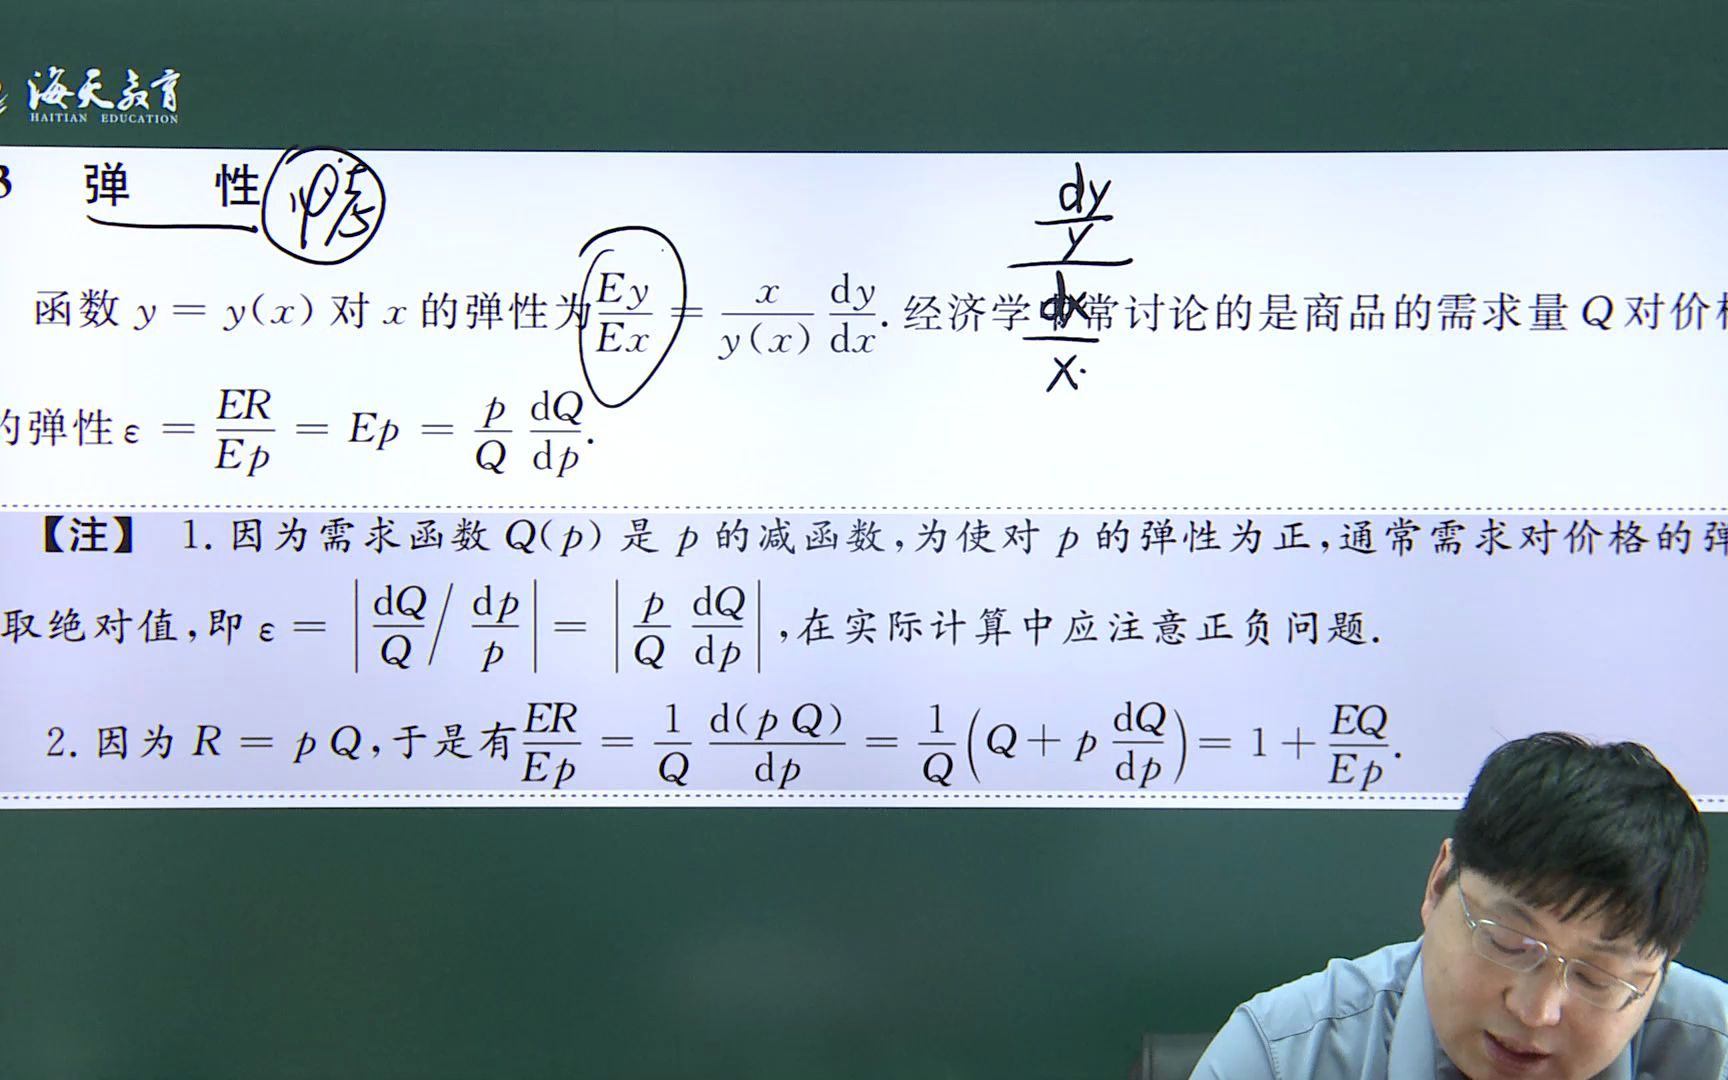 海天教育
HAITIAN EDUCATION
3 弹 性
dy/y / dx/x
函数 y = y(x) 对 x 的弹性为 Ey/Ex = x/y(x) dy/dx. 经济学中常讨论的是商品的需求量 Q 对价格
的弹性 ε = ER/Ep = Ep = p/Q dQ/dp.
【注】 1. 因为需求函数 Q(p) 是 p 的减函数,为使对 p 的弹性为正,通常需求对价格的弹
取绝对值,即 ε = |dQ/Q / dp/p| = |p/Q dQ/dp|,在实际计算中应注意正负问题.
2. 因为 R = pQ,于是有 ER/Ep = 1/Q d(pQ)/dp = 1/Q (Q + p dQ/dp) = 1 + EQ/Ep.